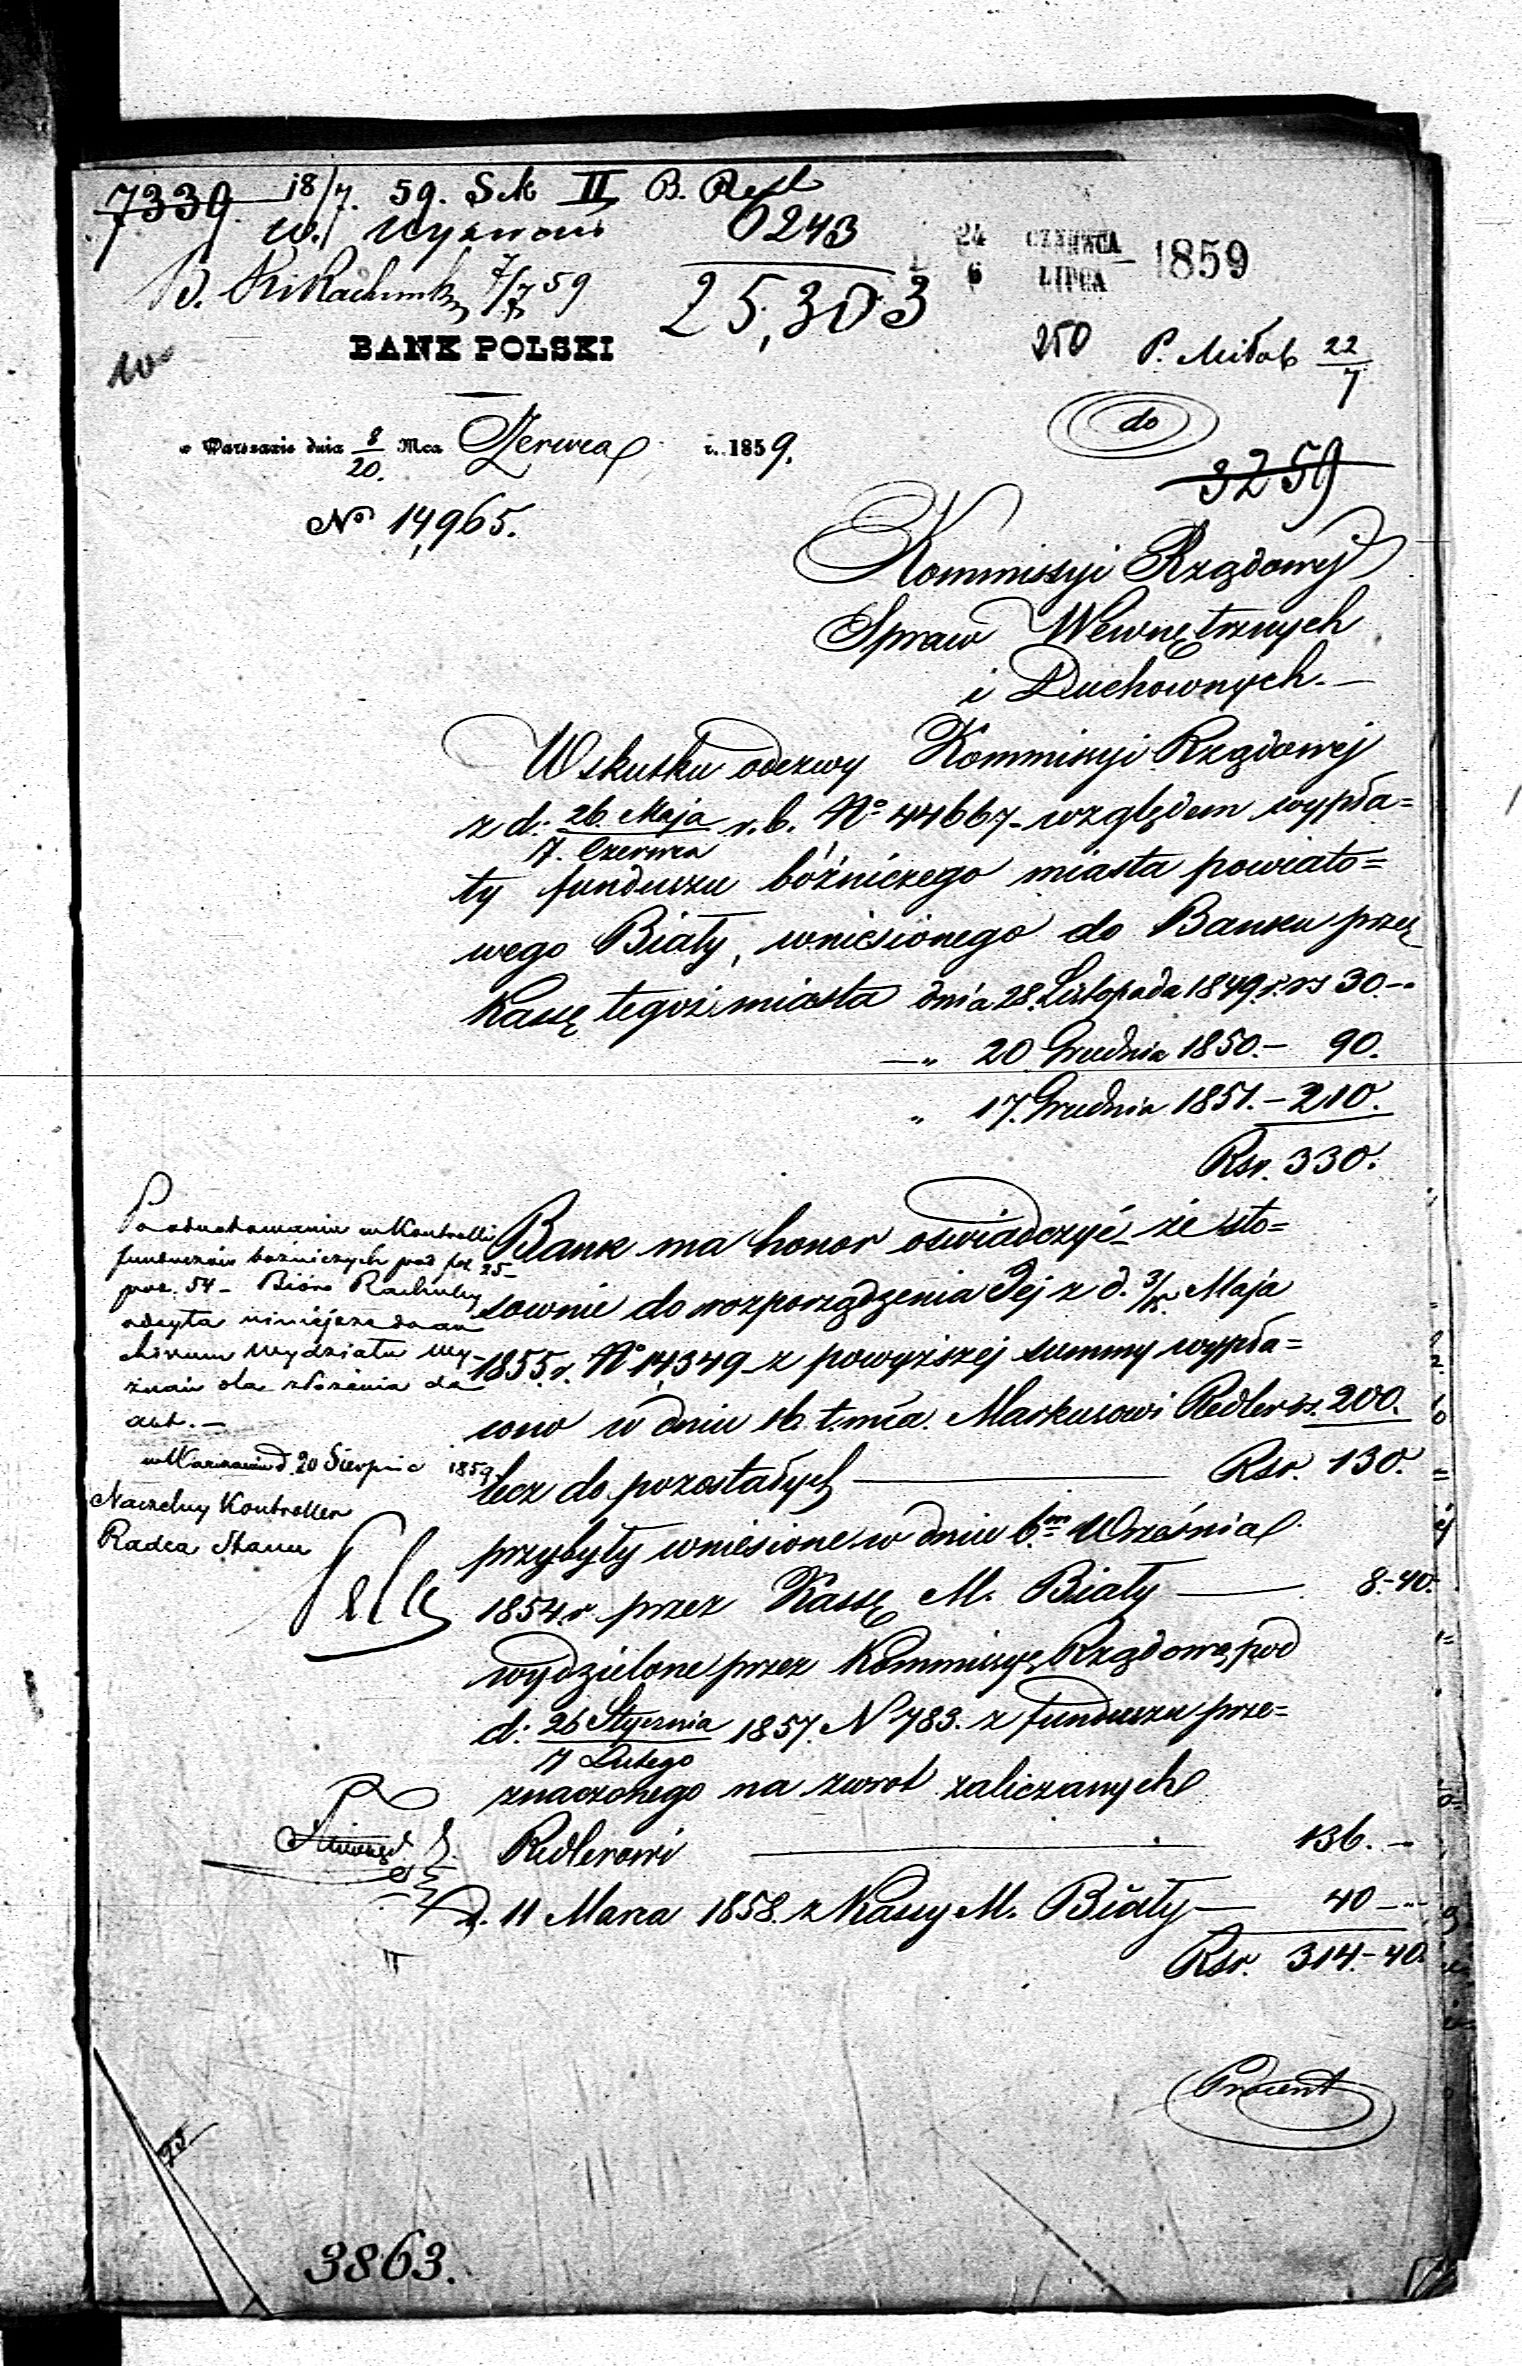 7339. 18/7. 59. Sek II B. Rest
W. Wyznań 6243
25,303
24 CZERWCA
6 LIPCA 1859
7/7 59
BANK POLSKI
250 P. Miłob 22/7
do
w Warszawie dnia 8/20. Mca Czerwca r. 1859.
3259
No 14,965.
Kommissyi Rządowej
Spraw Wewnętrznych
i Duchownych.—
Wskutku odezwy Kommissyi Rządowej
z d: 26. Maja / 7. Czerwca r. b. No 44667 względem wypła=
ty funduszu bóżniczego miasta powiato=
wego Biały, wniesionego do Banku przez
Kassę tegoż miasta dnia 28. Listopada 1849. r. rs 30.—
—„ 20 Grudnia 1850.— 90.
„ 17. Grudnia 1851.— 210.
Rsr. 330.
Bank ma honor oświadczyć że sto=
sownie do rozporządzenia Jej z d. 3/15. Maja
1855. r. No 14,349 z powyższej summy wypła=
cono w dniu 16. t. mca. Markusowi Redler rs. 200.
Rsr. 130.
lecz do pozostałych
przybyły wniesione w dniu 6.m Września
1854. r. przez Kassę M. Biały — 8.-40.
wydzielone przez Kommissyę Rządową pod
d: 26 Stycznia / 7 Lutego 1857. N 783. z funduszu prze=
znaczonego na zwrot zaliczanych
Redlerowi — 136.—
d. 11 Marca 1858. z Kassy M. Biały — 40 —
Rsr. 314.-40.
Procent
Po odnotowaniu w Kontrolli
funduszów bóżniczych pod fol. 25
poz. 54 — Bióro Rachuby
odsyła niniejsze do ar
chiwum Wydziału Wy-
znań dla złożenia do
akt.—
w Warszawie d. 20 Sierpnia 1859
Naczelny Kontroller
Radca Stanu
3863.